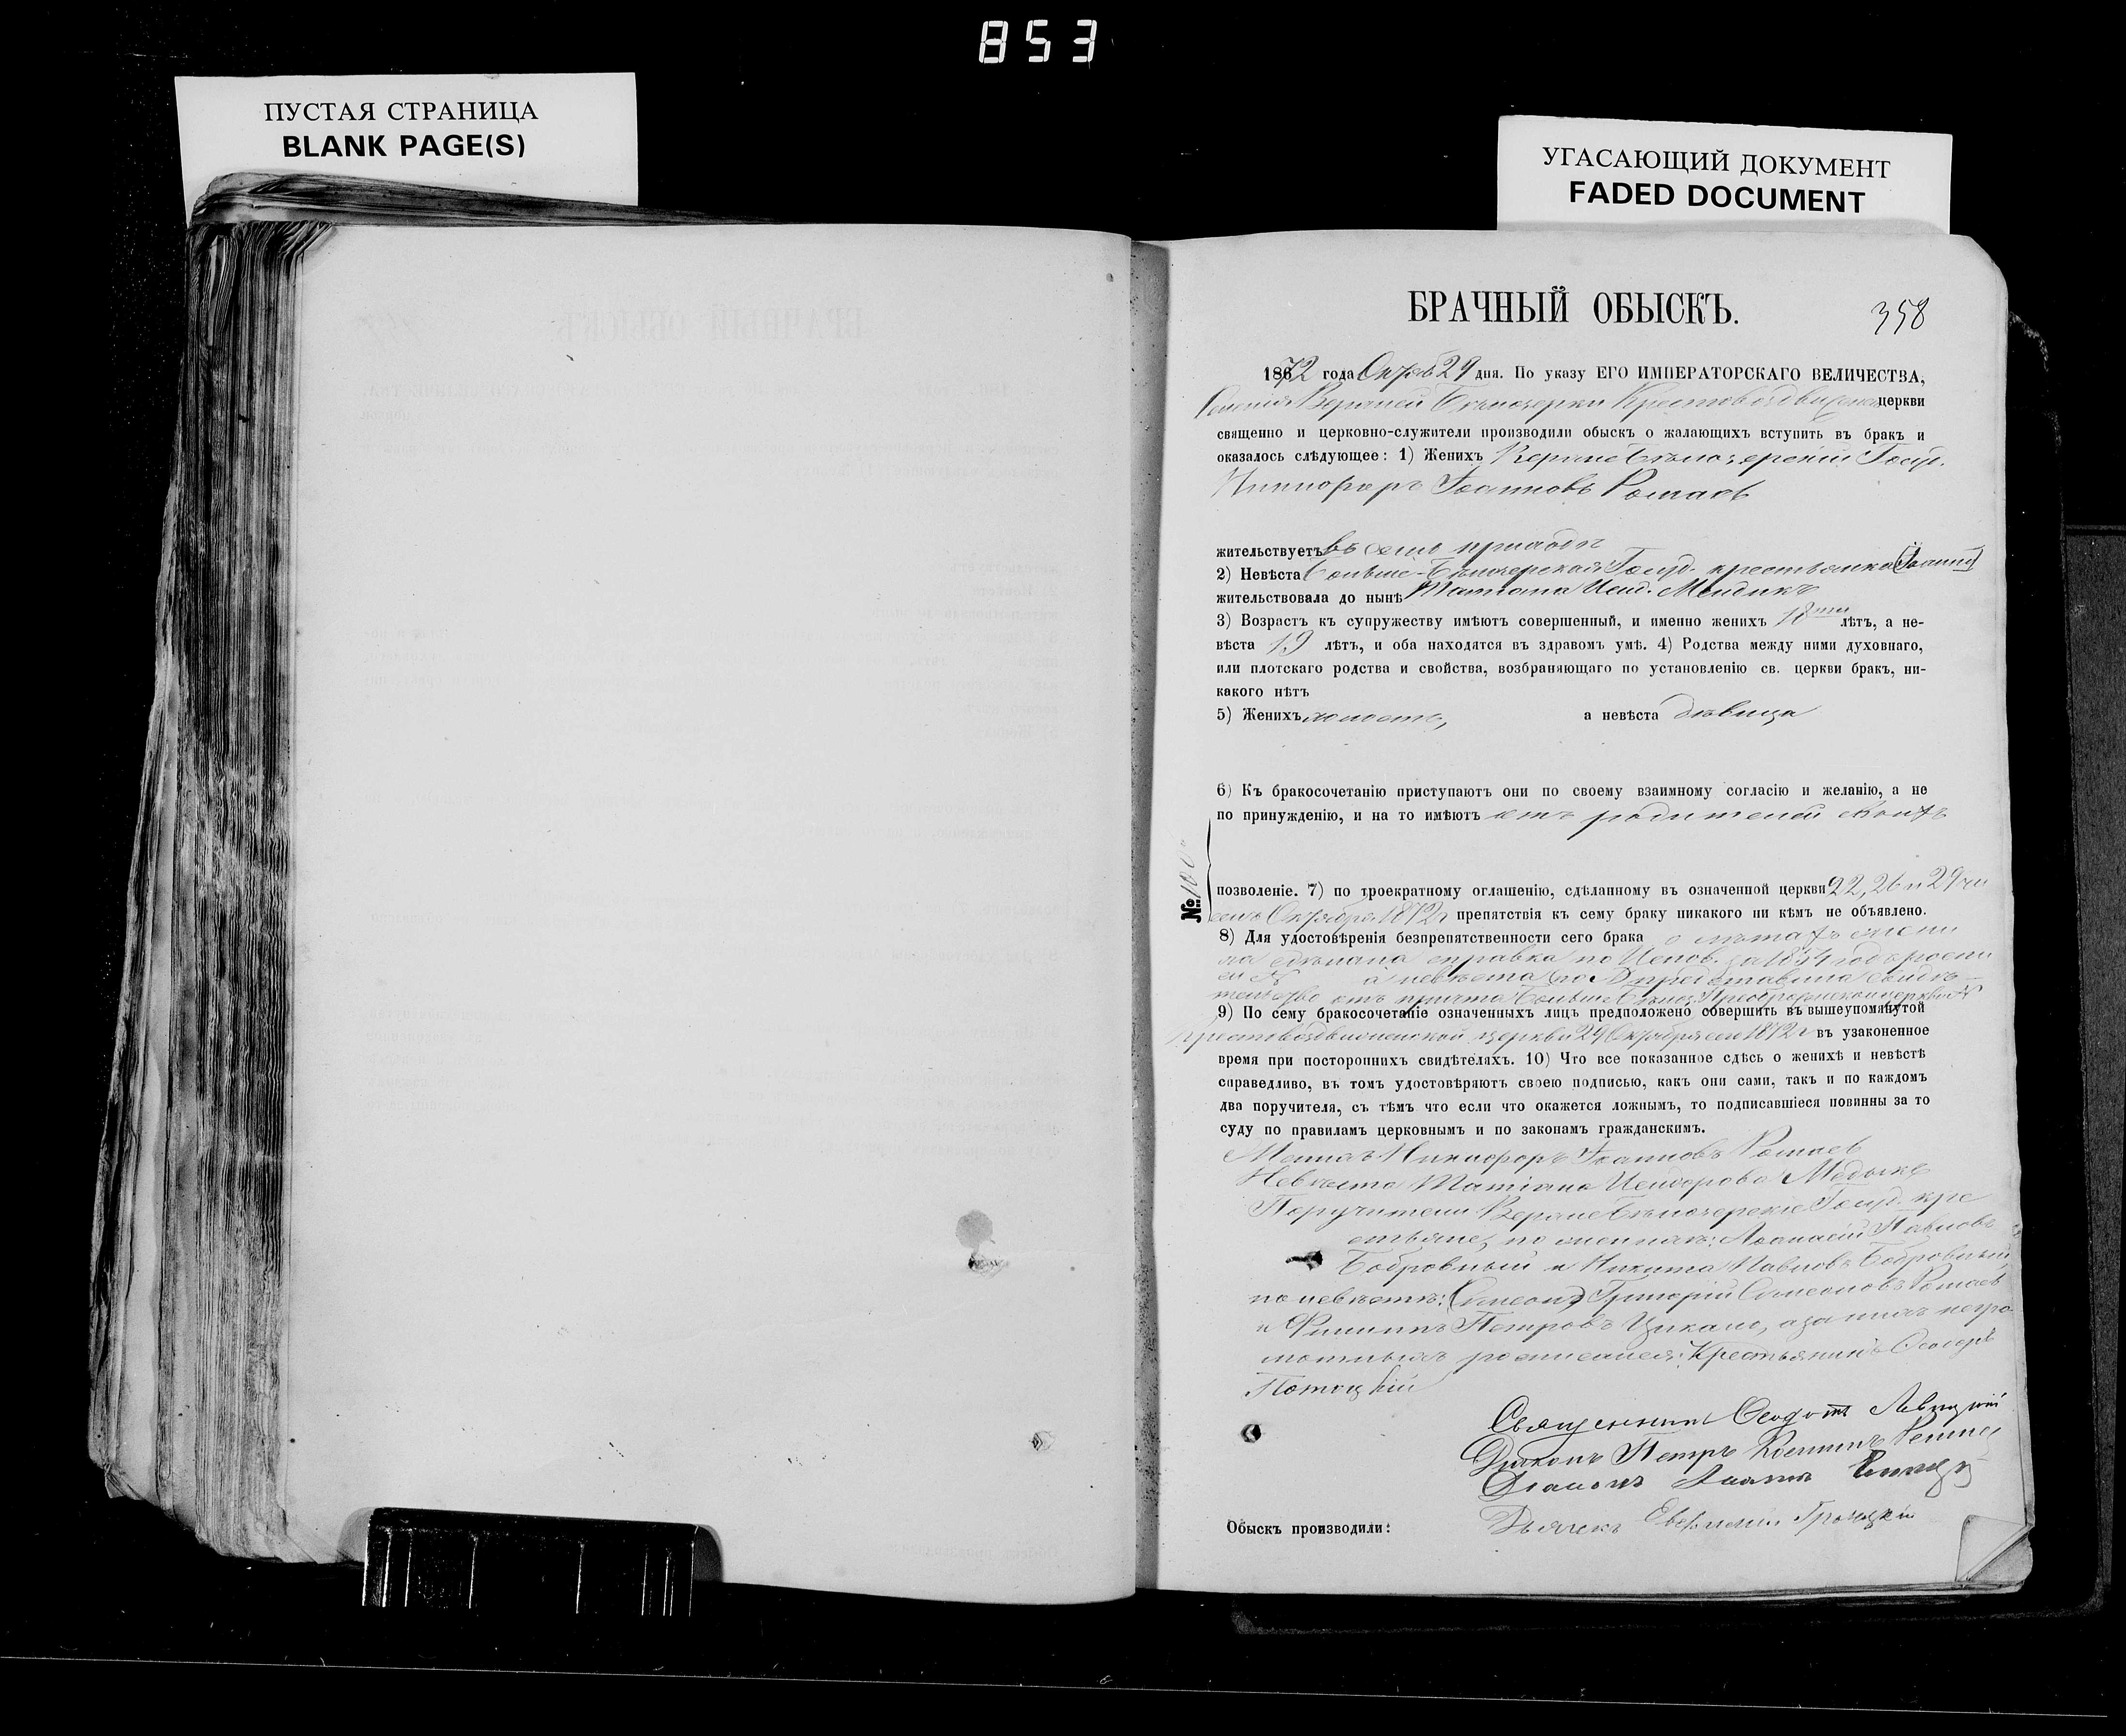 853
ПУСТАЯ СТРАНИЦА
BLANK PAGE(S)
УГАСАЮЩИЙ ДОКУМЕНТ
FADED DOCUMENT
БРАЧНЫЙ ОБЫСКЪ.
358
1872 года Октяб 29 дня. По указу ЕГО ИМПЕРАТОРСКАГО ВЕЛИЧЕСТВА,
Селенія Верхней Бѣлозерки Крестовоздвиженск церкви
священно и церковно-служители производили обыскъ о жалающихъ вступить въ бракъ и
оказалось слѣдующее: 1) Женихъ Верхне Бѣлозерскій Госуд.
Никифоръ Іоанновъ
жительствуетъ въ семъ приходѣ
2) Невѣста Больше-Бѣлозерская Госуд. крестьянка
жительствовала до нынѣ Татіана Исид.
3) Возрастъ къ супружеству имѣютъ совершенный, и именно женихъ 18ти лѣтъ, а не-
вѣста 19 лѣтъ, и оба находятся въ здравомъ умѣ. 4) Родства между ними духовнаго,
или плотскаго родства и свойства, возбраняющаго по установленію св. церкви бракъ, ни-
какого нѣтъ
5) Женихъ холостъ, а невѣста дѣвица
6) Къ бракосочетанію приступаютъ они по своему взаимному согласію и желанію, а не
по принужденію, и на то имѣютъ отъ родителей своихъ
№
позволеніе. 7) по троекратному оглашенію, сдѣланному въ означенной церкви 22, 26 и 29 чи
селъ Октября 1872 г препятствія къ сему браку никакого ни кѣмъ не объявлено.
8) Для удостовѣренія безпрепятственности сего брака о лѣтахъ жени
ха сдѣлана справка по Испов. за 1854 годъ
а невѣста представила свидѣ-
тельство отъ причта Больше Бѣлоз. Преображенской церкви №
9) По сему бракосочетаніе означенныхъ лицъ предположено совершить въ вышеупомянутой
Крестовоздвиженской церкви 29 Октября сего 1872 г въ узаконенное
время при постороннихъ свидѣтеляхъ. 10) Что все показанное сдѣсь о женихѣ и невѣстѣ
справедливо, въ томъ удостовѣряютъ своею подписью, какъ они сами, такъ и по каждомъ
два поручителя, съ тѣмъ что если что окажется ложнымъ, то подписавшіеся повинны за то
суду по правиламъ церковнымъ и по законамъ гражданскимъ.
Женихъ Никифоръ Іоанновъ
Невѣста Татіана Исидорова
Поручители Верхне Бѣлозерскіе Госуд. кре
стьяне, по женихѣ: Аѳанасій Павловъ
Бобровный и Никита Павловъ Бобровный,
по невѣстѣ: (Симеонъ) Григорій Симеоновъ
и Филиппъ Петровъ Цикало, а за нихъ негра
мотныхъ росписался: Крестьянинъ
Потоцкій
Священникъ Ѳеодотъ Левицкій
Діаконъ Петръ
Діаконъ
Обыскъ производили: Дьячекъ Евфимій